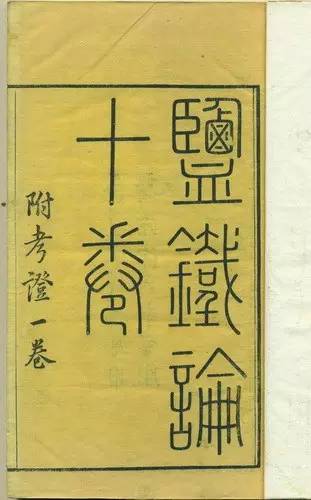 鹽鐵論
十卷
附考證一卷